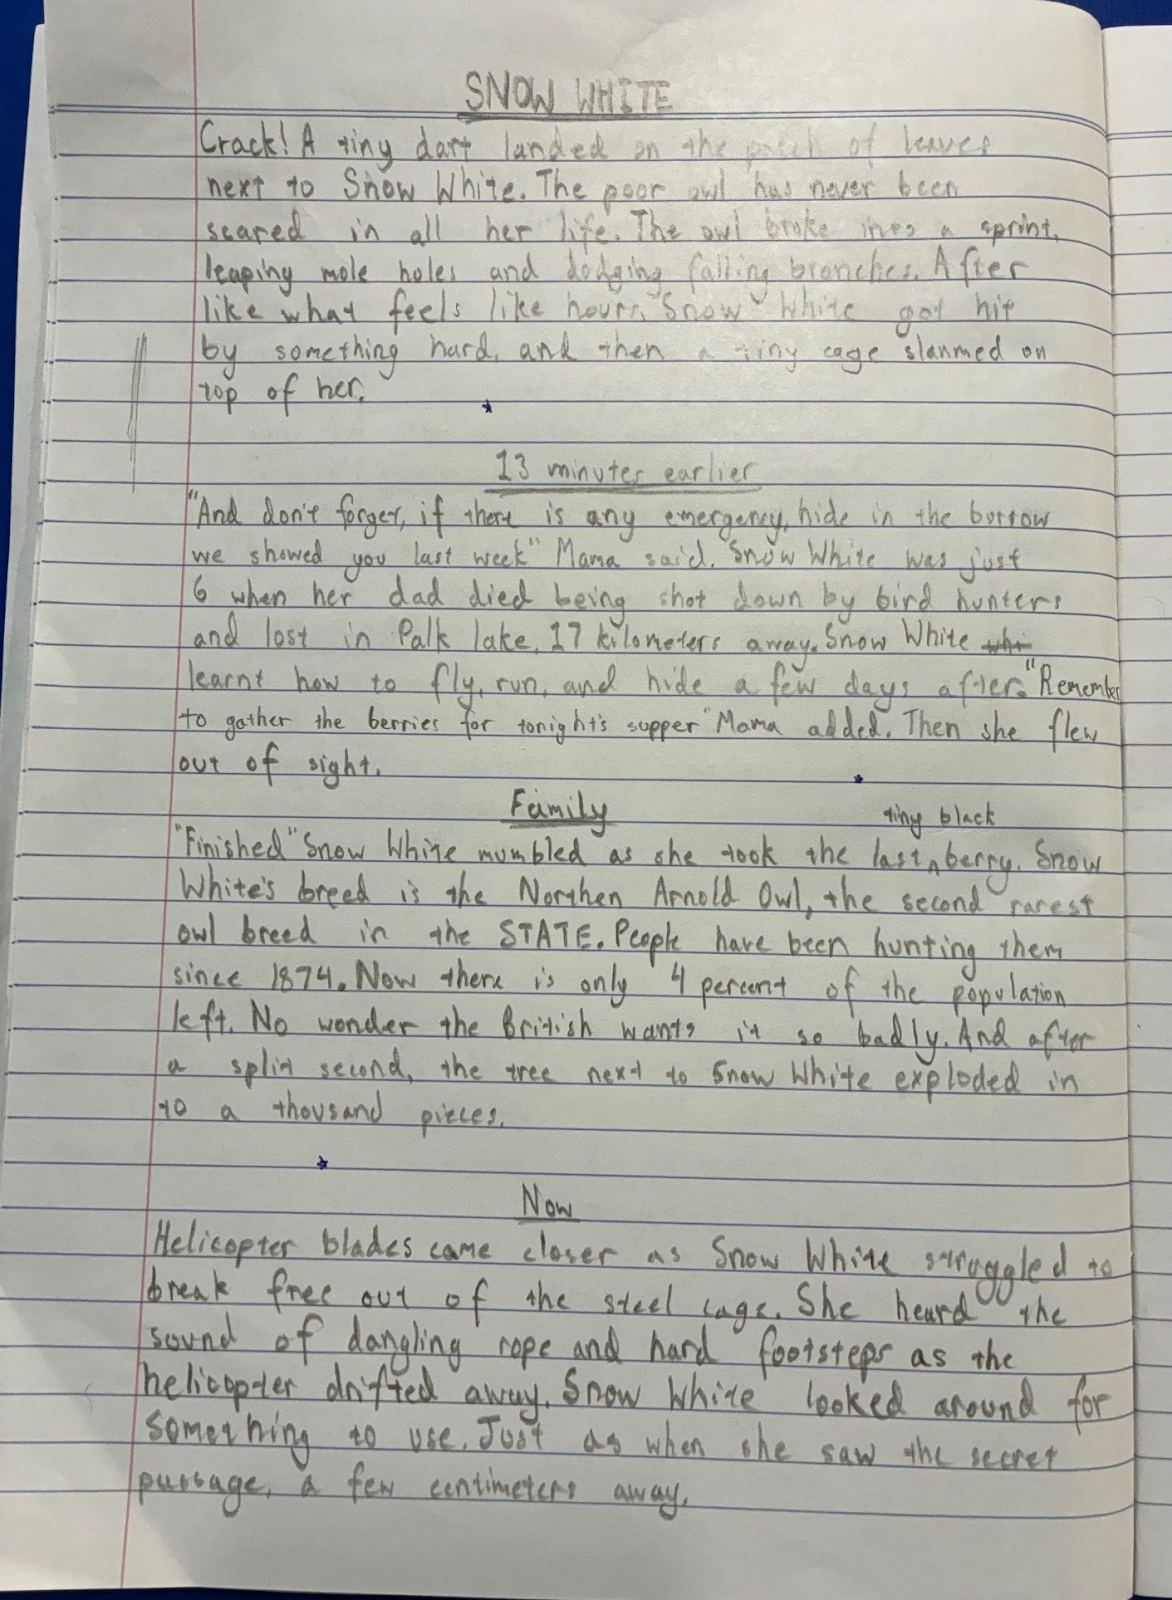 SNOW WHITE
Crack! A tiny dart landed on the patch of leaves
next to Snow White. The poor owl has never been
scared in all her life. The owl broke into a sprint,
leaping mole holes and dodging falling branches. After
like what feels like hours, Snow White got hit
by something hard, and then a tiny cage slammed on
top of her.
13 minutes earlier
"And don't forget, if there is any emergency, hide in the burrow
we showed you last week" Mama said. Snow White was just
6 when her dad died being shot down by bird hunters
and lost in Palk lake, 17 kilometers away. Snow White
learnt how to fly, run, and hide a few days after. "Remember
to gather the berries for tonight's supper" Mama added. Then she flew
out of sight.
Family
tiny black
"Finished" Snow White mumbled as she took the last berry. Snow
White's breed is the Northen Arnold Owl, the second rarest
owl breed in the STATE. People have been hunting them
since 1874. Now there is only 4 percent of the population
left. No wonder the British wants it so badly. And after
a split second, the tree next to Snow White exploded in
to a thousand pieces.
Now
Helicopter blades came closer as Snow White struggled to
break free out of the steel cage. She heard the
sound of dangling rope and hard footsteps as the
helicopter drifted away. Snow White looked around for
something to use. Just as when she saw the secret
passage, a few centimeters away.